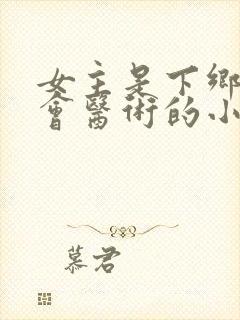 女主是下鄉
會醫術的小
慕君